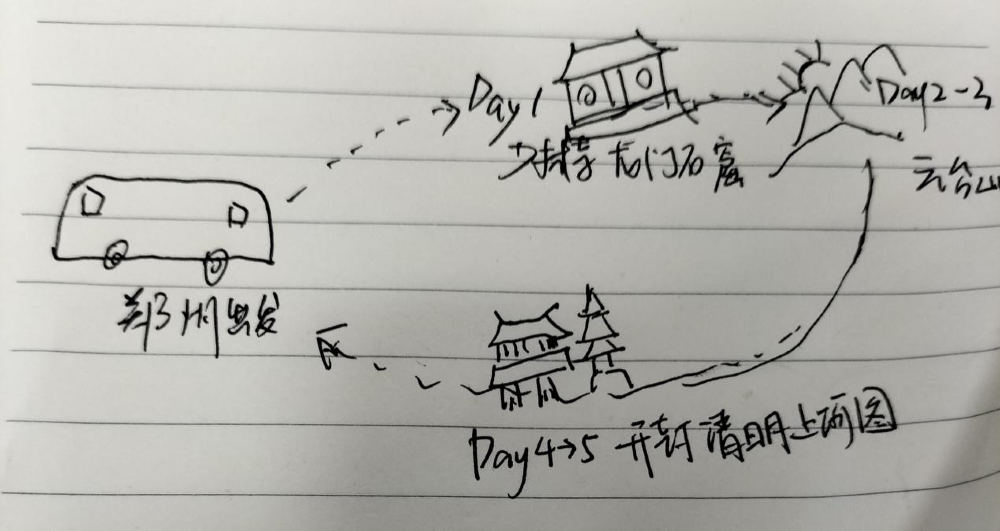 Day 1
少林寺 龙门石窟
Day2-3
云台山
郑州出发
Day4→5 开封 清明上河图